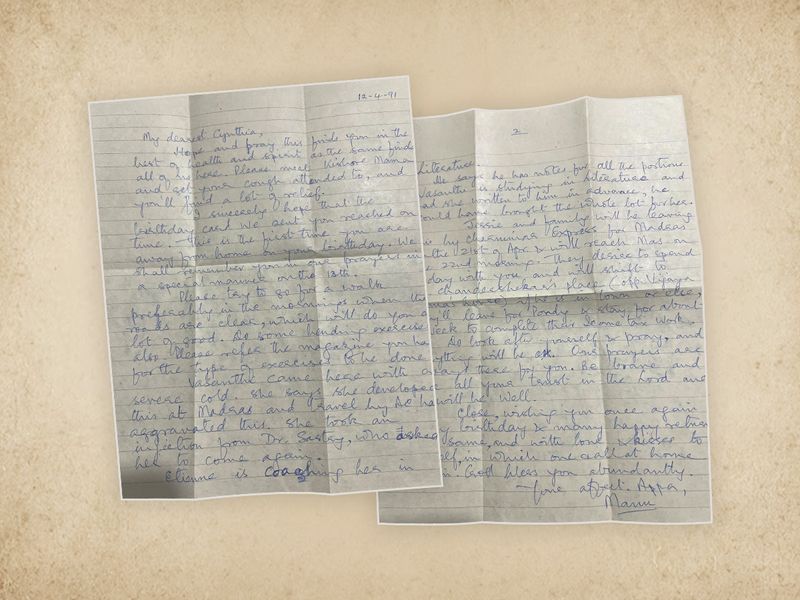 12-4-91
My dearest Cynthia,
Hope and pray this finds you in the
best of health and spirit as the same finds
all of us here. Please meet Kishore Mama
and get your cough attended to, and
you'll find a lot of relief.
I sincerely hope that the
birthday card we sent you reached on
time. This is the first time you are
away from home on your birthday. We
shall remember you in our prayers in
a special manner on the 13th.
Please try to go for a walk
preferably in the mornings when the
roads are clear, which will do you a
lot of good. Do some bending exercise
also. Please refer the magazine you ha
for the type of exercises to be done
Vasanthe came here with a
severe cold. She says she developed
this at Madras and travel by AC ha
aggravated this. She took an
injection from Dr. Sastry, who asked
her to come again.
Etienne is coaching her in
2
Literature.
He says he has notes for all the portions
Vasanthi is studying in literature and
had she written to him in advance, he
would have brought the whole lot for her.
Jessie and family will be leaving
by Cheranmaa Express for Madras
the 21st of Apr. & will reach Mas. on
22nd morning. They desire to spend
day with you, and will shift to
Chandrasekhar's place (opp. Vijaya
if he is in town or else,
'll leave for Pondy & stay for about
week to complete their Income tax work.
Do look after yourself & pray, and
everything will be ok. Our prayers are
always there for you. Be brave and
all your trust in the Lord and
will be well.
Close, wishing you once again
birthday & many happy returns
same, and with love & kisses to
in which one & all at home
in. God bless you abundantly.
affect. Appa,